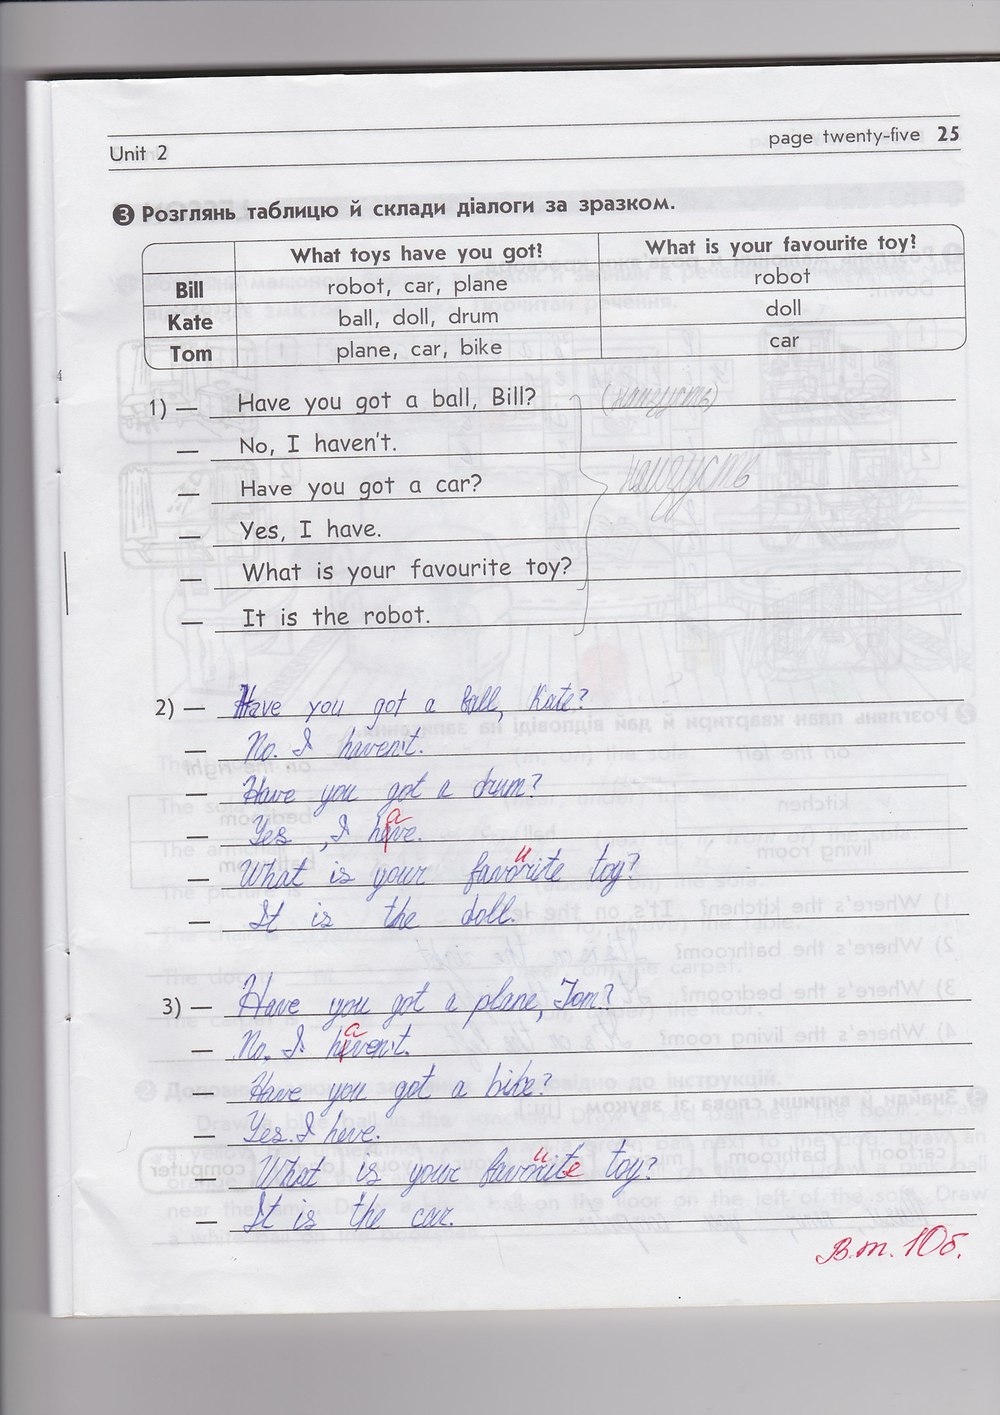 Unit 2
page twenty-five 25
3 Розглянь таблицю й склади діалоги за зразком.
What toys have you got? What is your favourite toy?
Bill robot, car, plane robot
Kate ball, doll, drum doll
Tom plane, car, bike car
1) — Have you got a ball, Bill?
— No, I haven't.
— Have you got a car?
— Yes, I have.
— What is your favourite toy?
— It is the robot.
2) — Have you got a ball, Kate?
— No. I haven't.
— Have you got a drum?
— Yes, I have.
— What is your favourite toy?
— It is the doll.
3) — Have you got a plane, Tom?
— No, I haven't.
— Have you got a bike?
— Yes. I heve.
— What is your favourite toy?
— It is the car.
В.т. 10б.